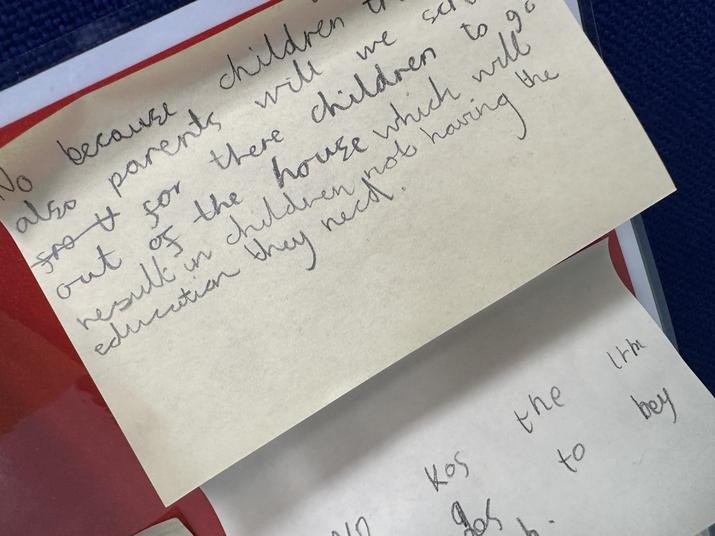 No because children
also parents will we
for there children to go
out of the house which will
result in children not having the
education they need.
No kos the
to bey